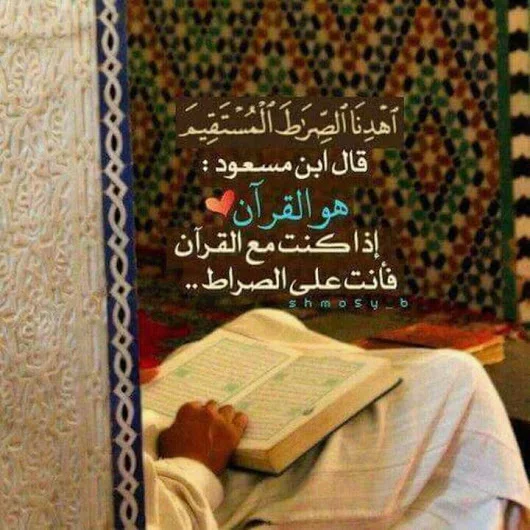 ٱهْدِنَا ٱلصِّرَٰطَ ٱلْمُسْتَقِيمَ
قال ابن مسعود :
هو القرآن
إذا كنت مع القرآن
فأنت على الصراط ..
shmosy_b